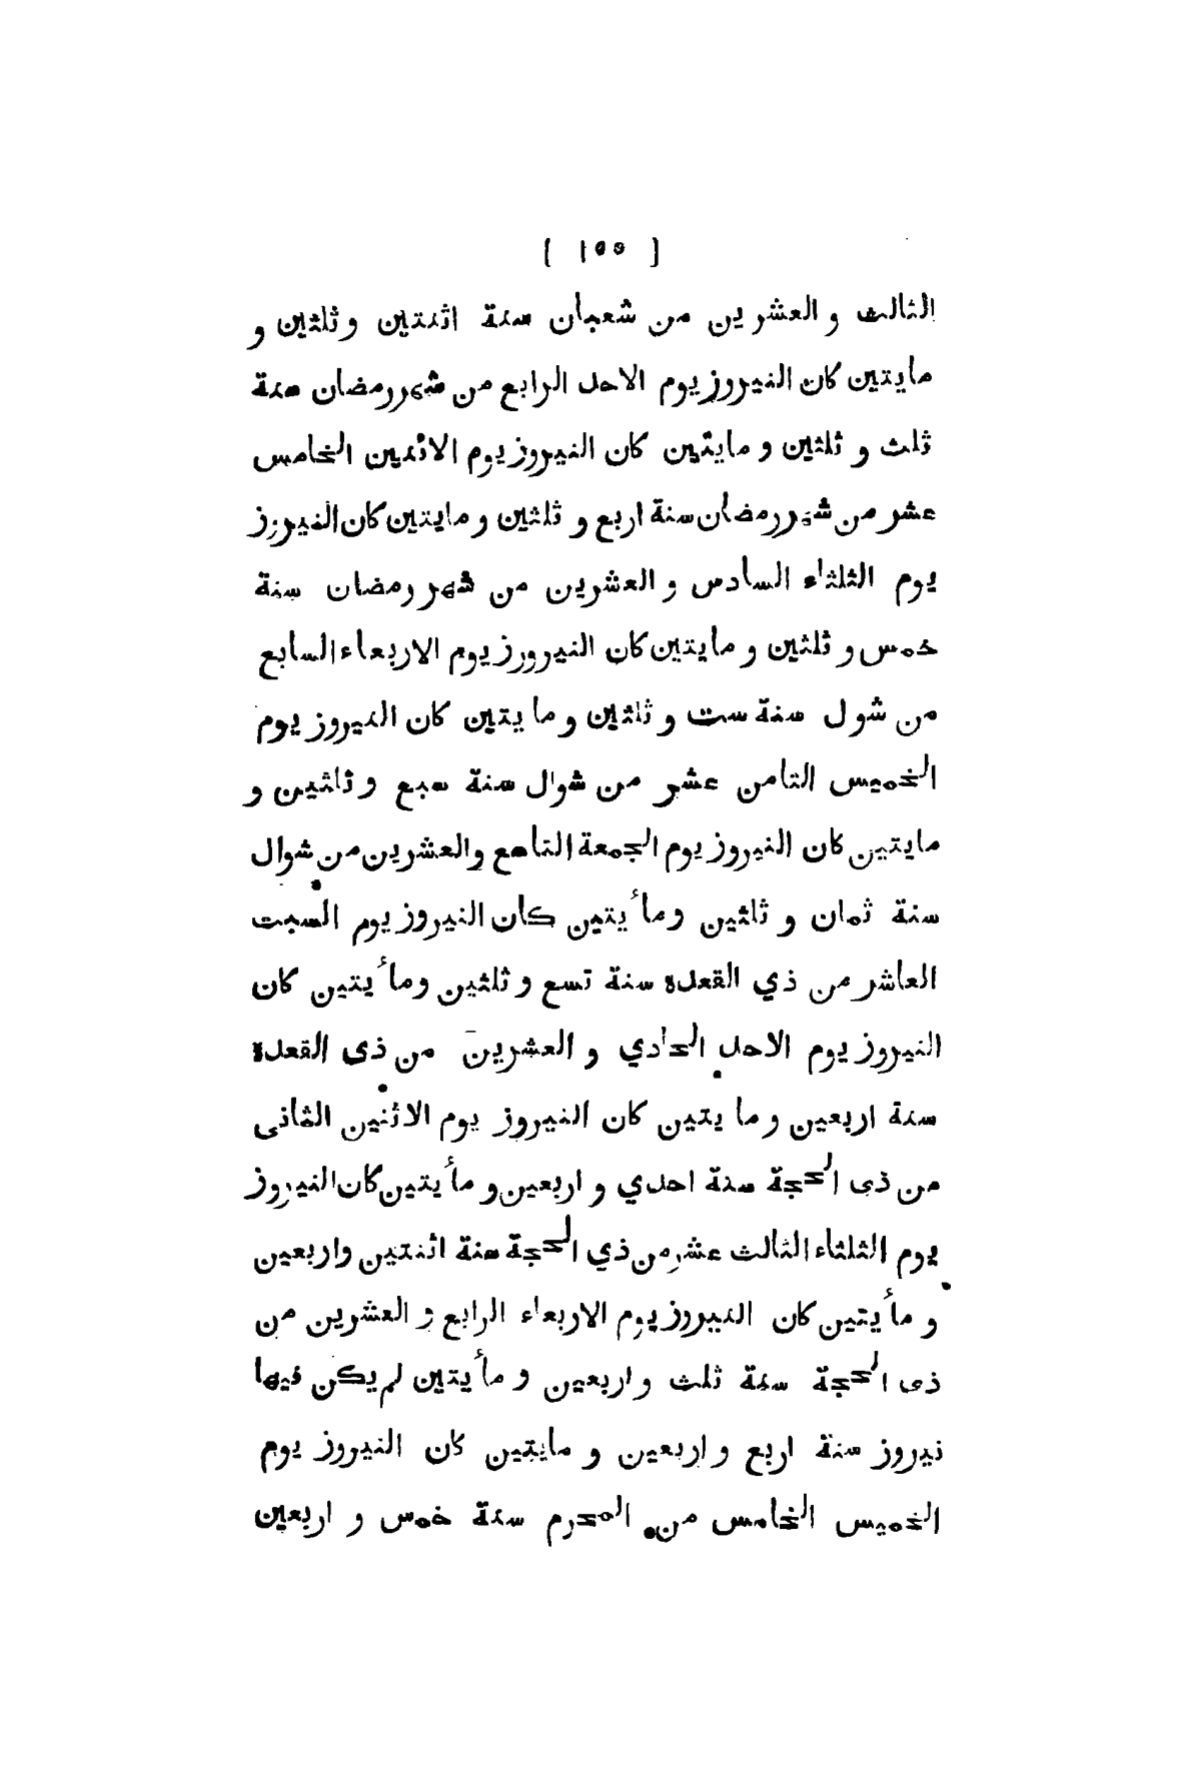 [ ١٥٥ ]
الثالث و العشرين من شعبان سنة اثنتين و ثلثين و
مايتين كان النيروز يوم الاحد الرابع من شهر رمضان سنة
ثلث و ثلثين و مايتين كان النيروز يوم الاثنين الخامس
عشر من شهر رمضان سنة اربع و ثلثين و مايتين كان النيروز
يوم الثلثاء السادس و العشرين من شهر رمضان سنة
خمس و ثلثين و مايتين كان النيرورز يوم الاربعاء السابع
من شول سنة ست و ثلثين و ما يتين كان النيروز يوم
الخميس الثامن عشر من شوال سنة سبع و ثلثين و
مايتين كان النيروز يوم الجمعة التاسع والعشرين من شوال
سنة ثمان و ثلثين ومأيتين كان النيروز يوم السبت
العاشر من ذي القعدة سنة تسع و ثلثين ومأيتين كان
النيروز يوم الاحد الحادي و العشرين من ذى القعدة
سنة اربعين و ما يتين كان النيروز يوم الاثنين الثانى
من ذى الحجة سنة احدي و اربعين و مأيتين كان النيروز
يوم الثلثاء الثالث عشر من ذي الحجة سنة اثنتين واربعين
و مأيتين كان النيروز يوم الاربعاء الرابع و العشرين من
ذى الحجة سنة ثلث و اربعين و مأيتين لم يكن فيها
نيروز سنة اربع و اربعين و مايتين كان النيروز يوم
الخميس الخامس من المحرم سنة خمس و اربعين